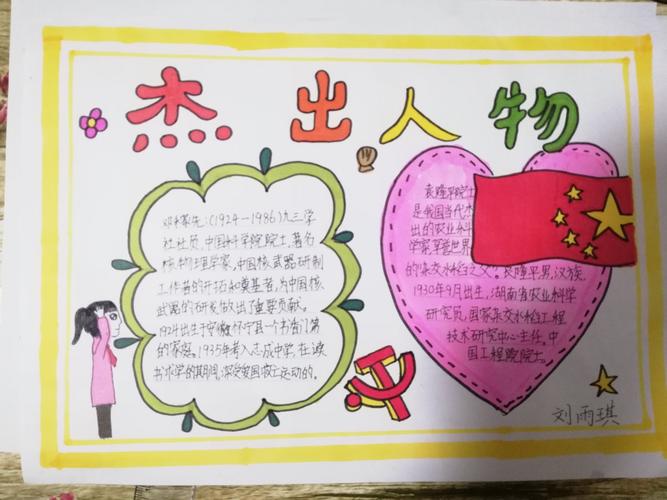 杰出人物
邓稼先:(1924—1986)九三学
社社员,中国科学院院士,著名
核物理学家,中国核武器研制
工作者的开拓和奠基者,为中国核
武器的研发做出了重要贡献。
1924出生于安徽怀宁县一个书香门第
的家庭。1935年考入志成中学,在读
书求学的其期间,深受爱国救亡运动的。
袁隆平院士
是我国当代杰
出的农业科
学家,享誉世界
的"杂交水稻之父"。袁隆平男,汉族,
1930年9月出生,湖南省农业科学
研究员,国家杂交水稻工程
技术研究中心主任,中
国工程院院士。
刘雨琪